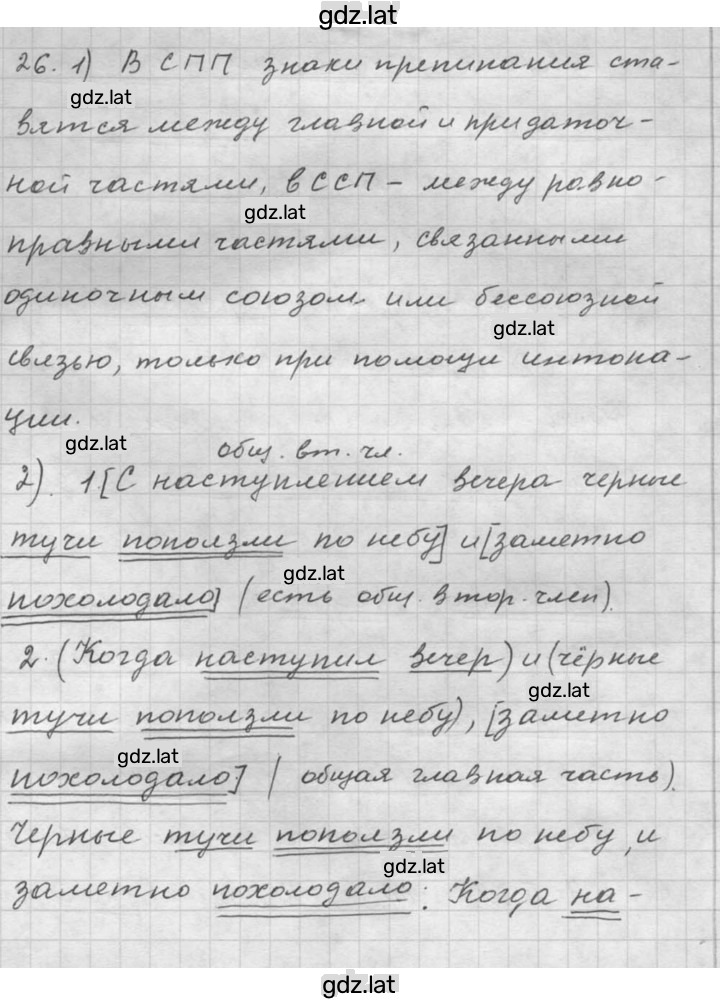 gdz.lat
26. 1) В СПП знаки препинания ста-
gdz.lat
вятся между главной и придаточ-
ной частями, в ССП – между равно-
gdz.lat
правными частями, связанными
одиночным союзом или бессоюзной
gdz.lat
связью, только при помощи интона-
ции.
gdz.lat
общ. вт. чл.
2). 1.[С наступлением вечера черные
тучи поползли по небу] и [заметно
gdz.lat
похолодало] (есть общ. втор. член).
2. (Когда наступил вечер) и (чёрные
gdz.lat
тучи поползли по небу), [заметно
gdz.lat
похолодало] (общая главная часть).
Черные тучи поползли по небу, и
gdz.lat
заметно похолодало: Когда на-
gdz.lat